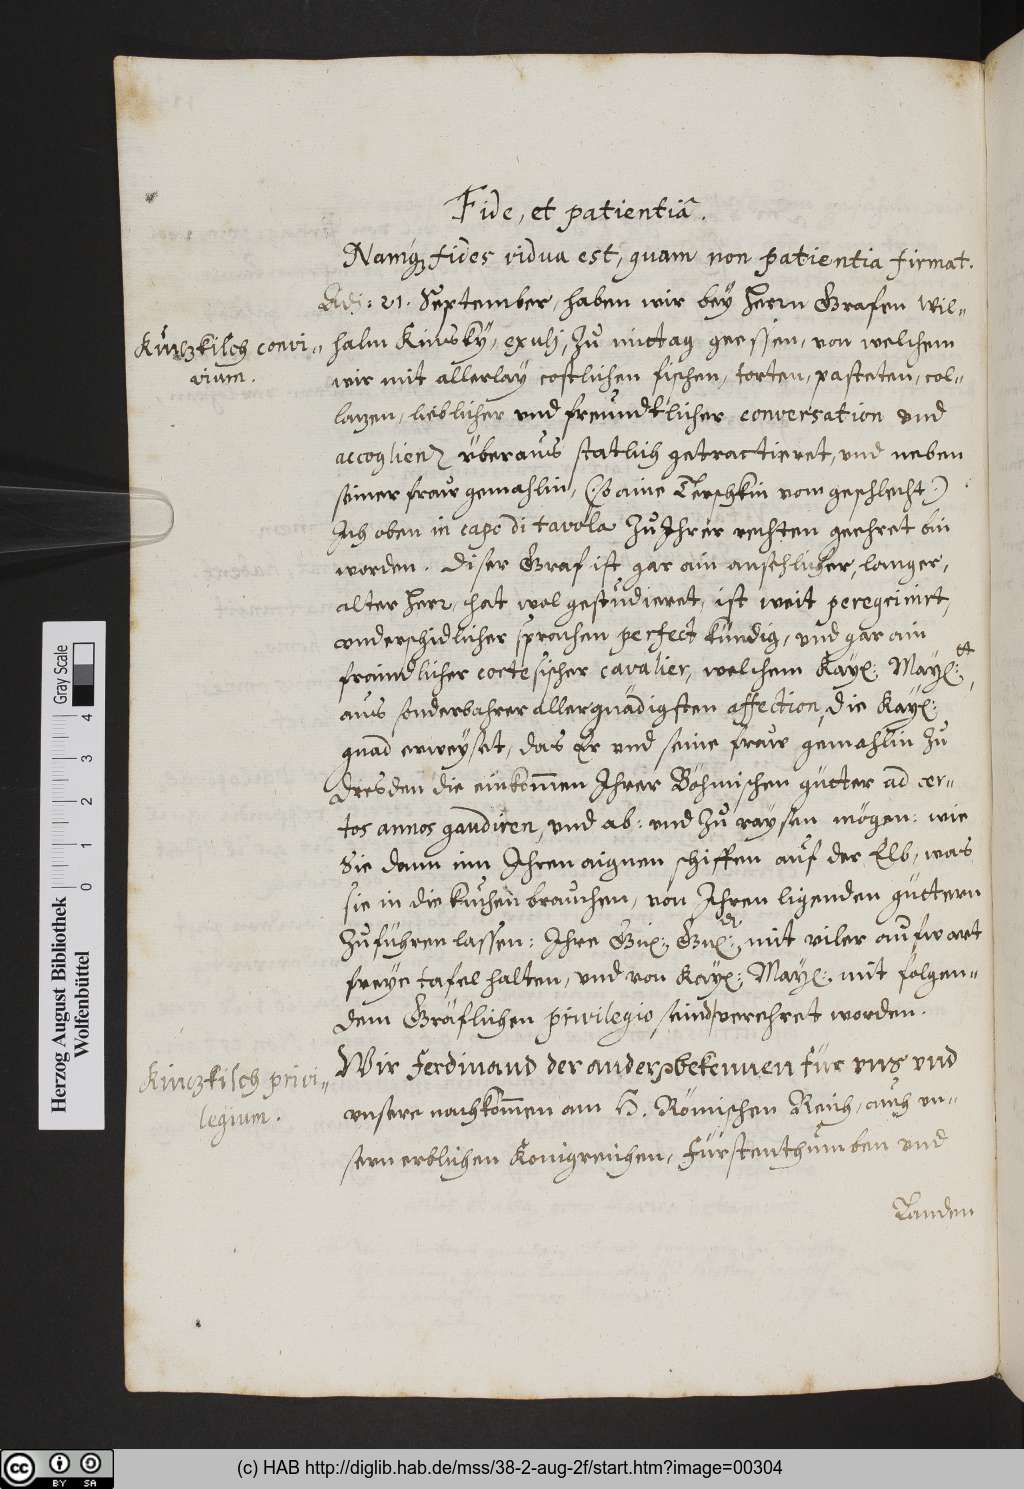 Fide, et patientiâ.
Namq3 fides vidua est, quam non patientia firmat.
Adj: 21. September, haben wir bey Herrn Grafen Wil-
Künzkilsch convi-
vium.
halm Kinsky, exulj, zu mittag geessen, von welchem
wir mit allerlay costlichen fischen, torten, pasteten, col-
lazen, lieblicher vnd freundtlicher conversation vnd
accoglienz vberaus statlich getractieret, vnd neben
seiner fraw gemahlin, (: so aine Terschkin vom geschlecht :)
Ich oben in capo di tavola zu Ihrer rechten geehret bin
worden. Diser Graf ist gar ain ansehlicher, langer,
alter Herr, hat wol gestudieret, ist weit peregrinirt,
vnderschidlicher sprachen perfect kündig, vnd gar ain
fraindlicher cortesischer cavalier, welchem Kay: May: tt
aus sonderbahrer allergnädigsten affection, die Kay:
gnad erweyset, das Er vnd seine fraw gemahlin zu
Dresden die einkommen Ihrer Böhmischen gütter ad cer-
tos annos gaudiren, vnd ab: vnd zu raysen mögen: wie
Sie dann inn Ihren aignen schiffen auf der Elb, was
sie in die kuchen brauchen, von Ihren ligenden güttern
zuführen lassen: Ihre Gn: Gn: mit viler aufwart
freye tafel halten, vnd von Kay: May: mit folgen-
dem Gräflichen privilegio, seind verehret worden.
Kinczkilsch privi-
legium.
Wir Ferdinand der ander, bekennen für vns vnd
vnsere nachkommen am H. Römischen Reich, auch vn-
sern erblichen Konigreichen, Fürstenthumben vnd
Landen
Herzog August Bibliothek
Wolfenbüttel
0 1 2 3 4
Gray Scale
cc BY SA
(c) HAB http://diglib.hab.de/mss/38-2-aug-2f/start.htm?image=00304